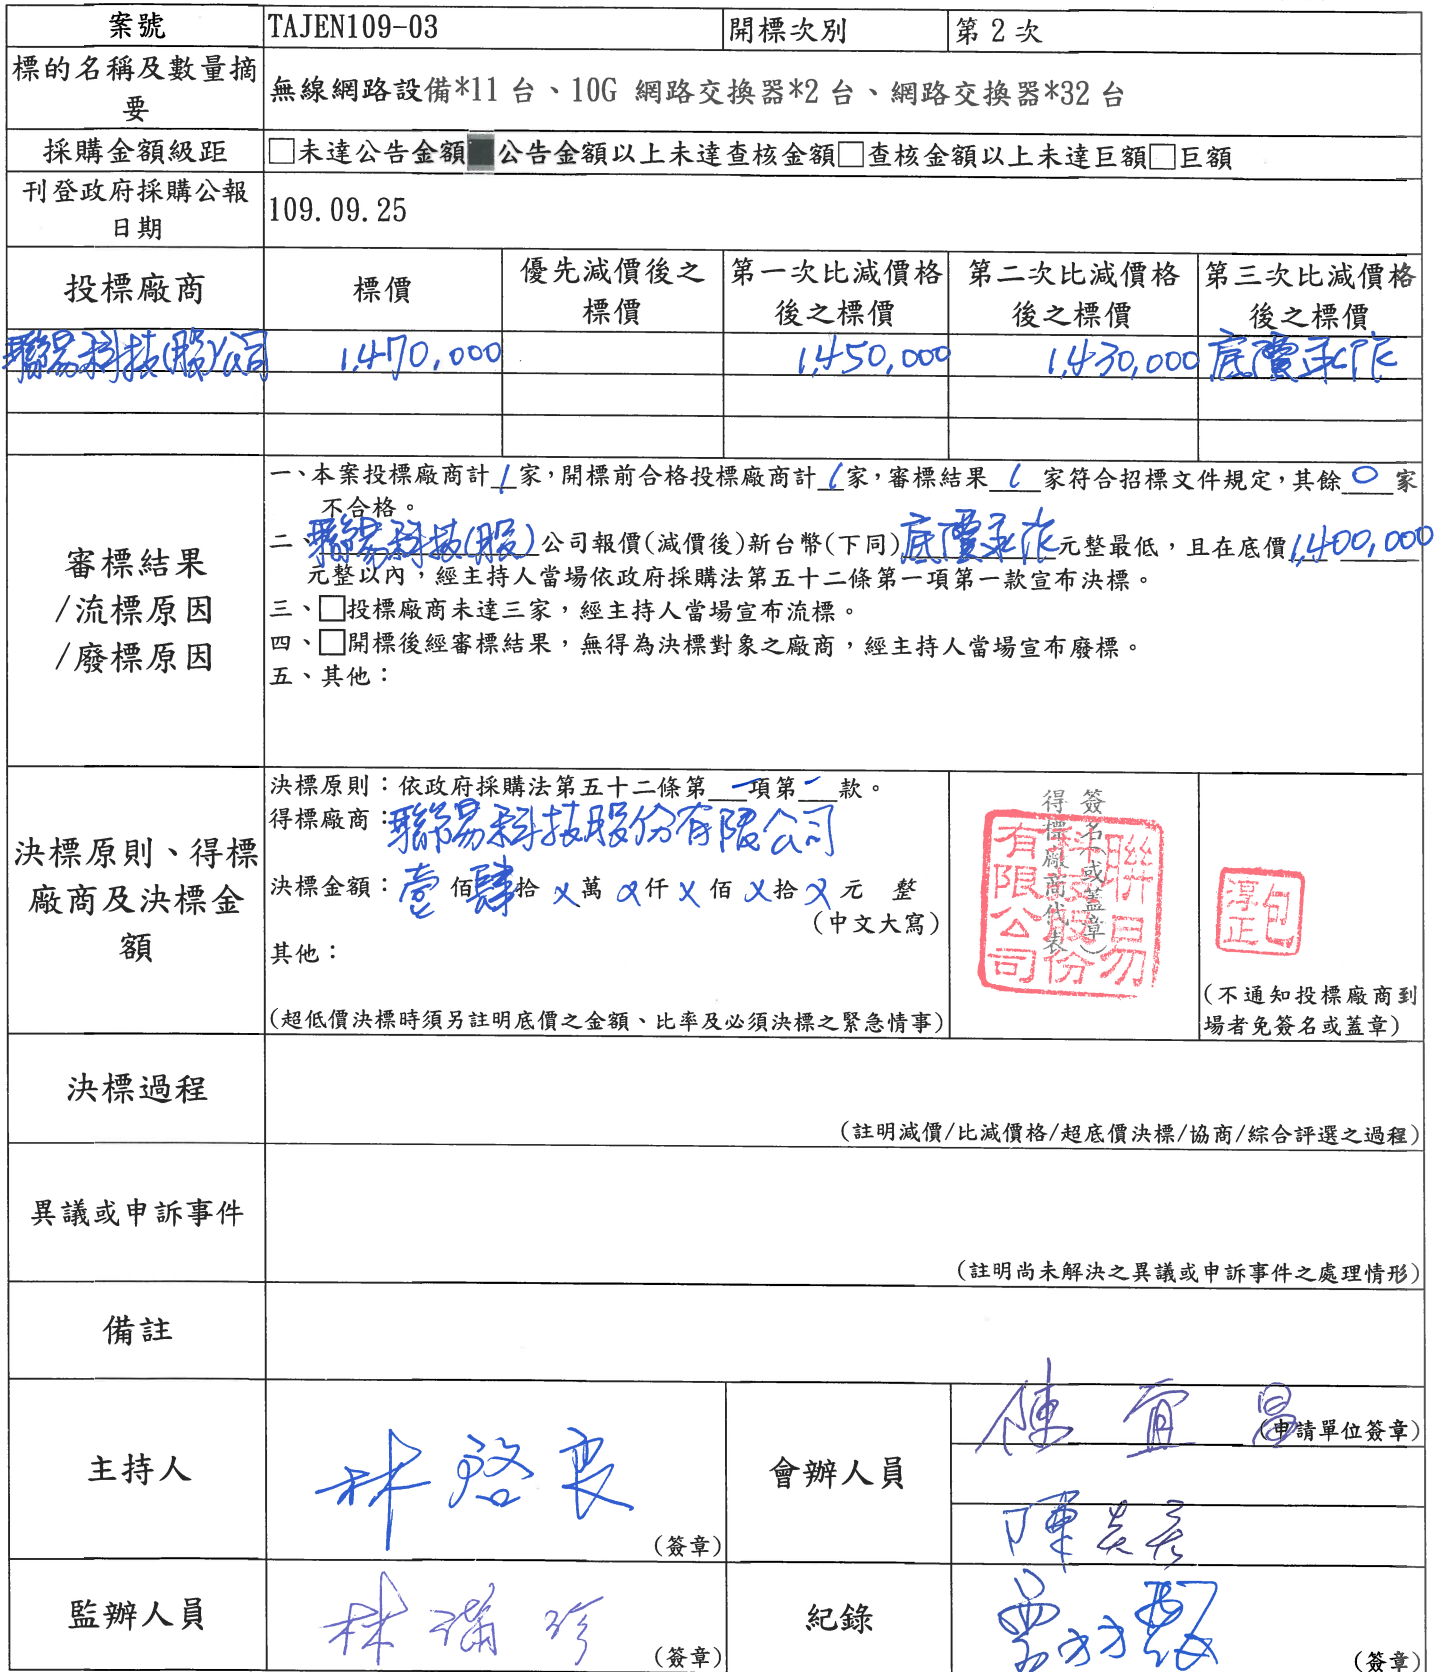 案號 TAJEN109-03 開標次別 第 2 次
標的名稱及數量摘要 無線網路設備*11 台、10G 網路交換器*2 台、網路交換器*32 台
採購金額級距 □未達公告金額■公告金額以上未達查核金額□查核金額以上未達巨額□巨額
刊登政府採購公報日期 109.09.25
投標廠商 標價 優先減價後之標價 第一次比減價格後之標價 第二次比減價格後之標價 第三次比減價格後之標價
聯易科技(股)公司 1,470,000 1,450,000 1,430,000 底價承作
審標結果
/流標原因
/廢標原因
一、本案投標廠商計1家,開標前合格投標廠商計1家,審標結果 1 家符合招標文件規定,其餘 0 家
不合格。
二、聯易科技(股)公司報價(減價後)新台幣(下同)底價承作元整最低,且在底價1,400,000
元整以內,經主持人當場依政府採購法第五十二條第一項第一款宣布決標。
三、□投標廠商未達三家,經主持人當場宣布流標。
四、□開標後經審標結果,無得為決標對象之廠商,經主持人當場宣布廢標。
五、其他:
決標原則、得標廠商及決標金額
決標原則:依政府採購法第五十二條第一項第一款。
得標廠商:聯易科技股份有限公司
決標金額:壹佰肆拾X萬X仟X佰X拾X元 整
(中文大寫)
其他:
(超低價決標時須另註明底價之金額、比率及必須決標之緊急情事)
得標廠商代表
簽名(或蓋章)
聯易科技股份有限公司
包淳正
(不通知投標廠商到
場者免簽名或蓋章)
決標過程
(註明減價/比減價格/超底價決標/協商/綜合評選之過程)
異議或申訴事件
(註明尚未解決之異議或申訴事件之處理情形)
備註
主持人 林啓良 (簽章)
會辦人員 陳宜昌 (申請單位簽章)
陳
監辦人員 林滿珍 (簽章)
紀錄 (簽章)